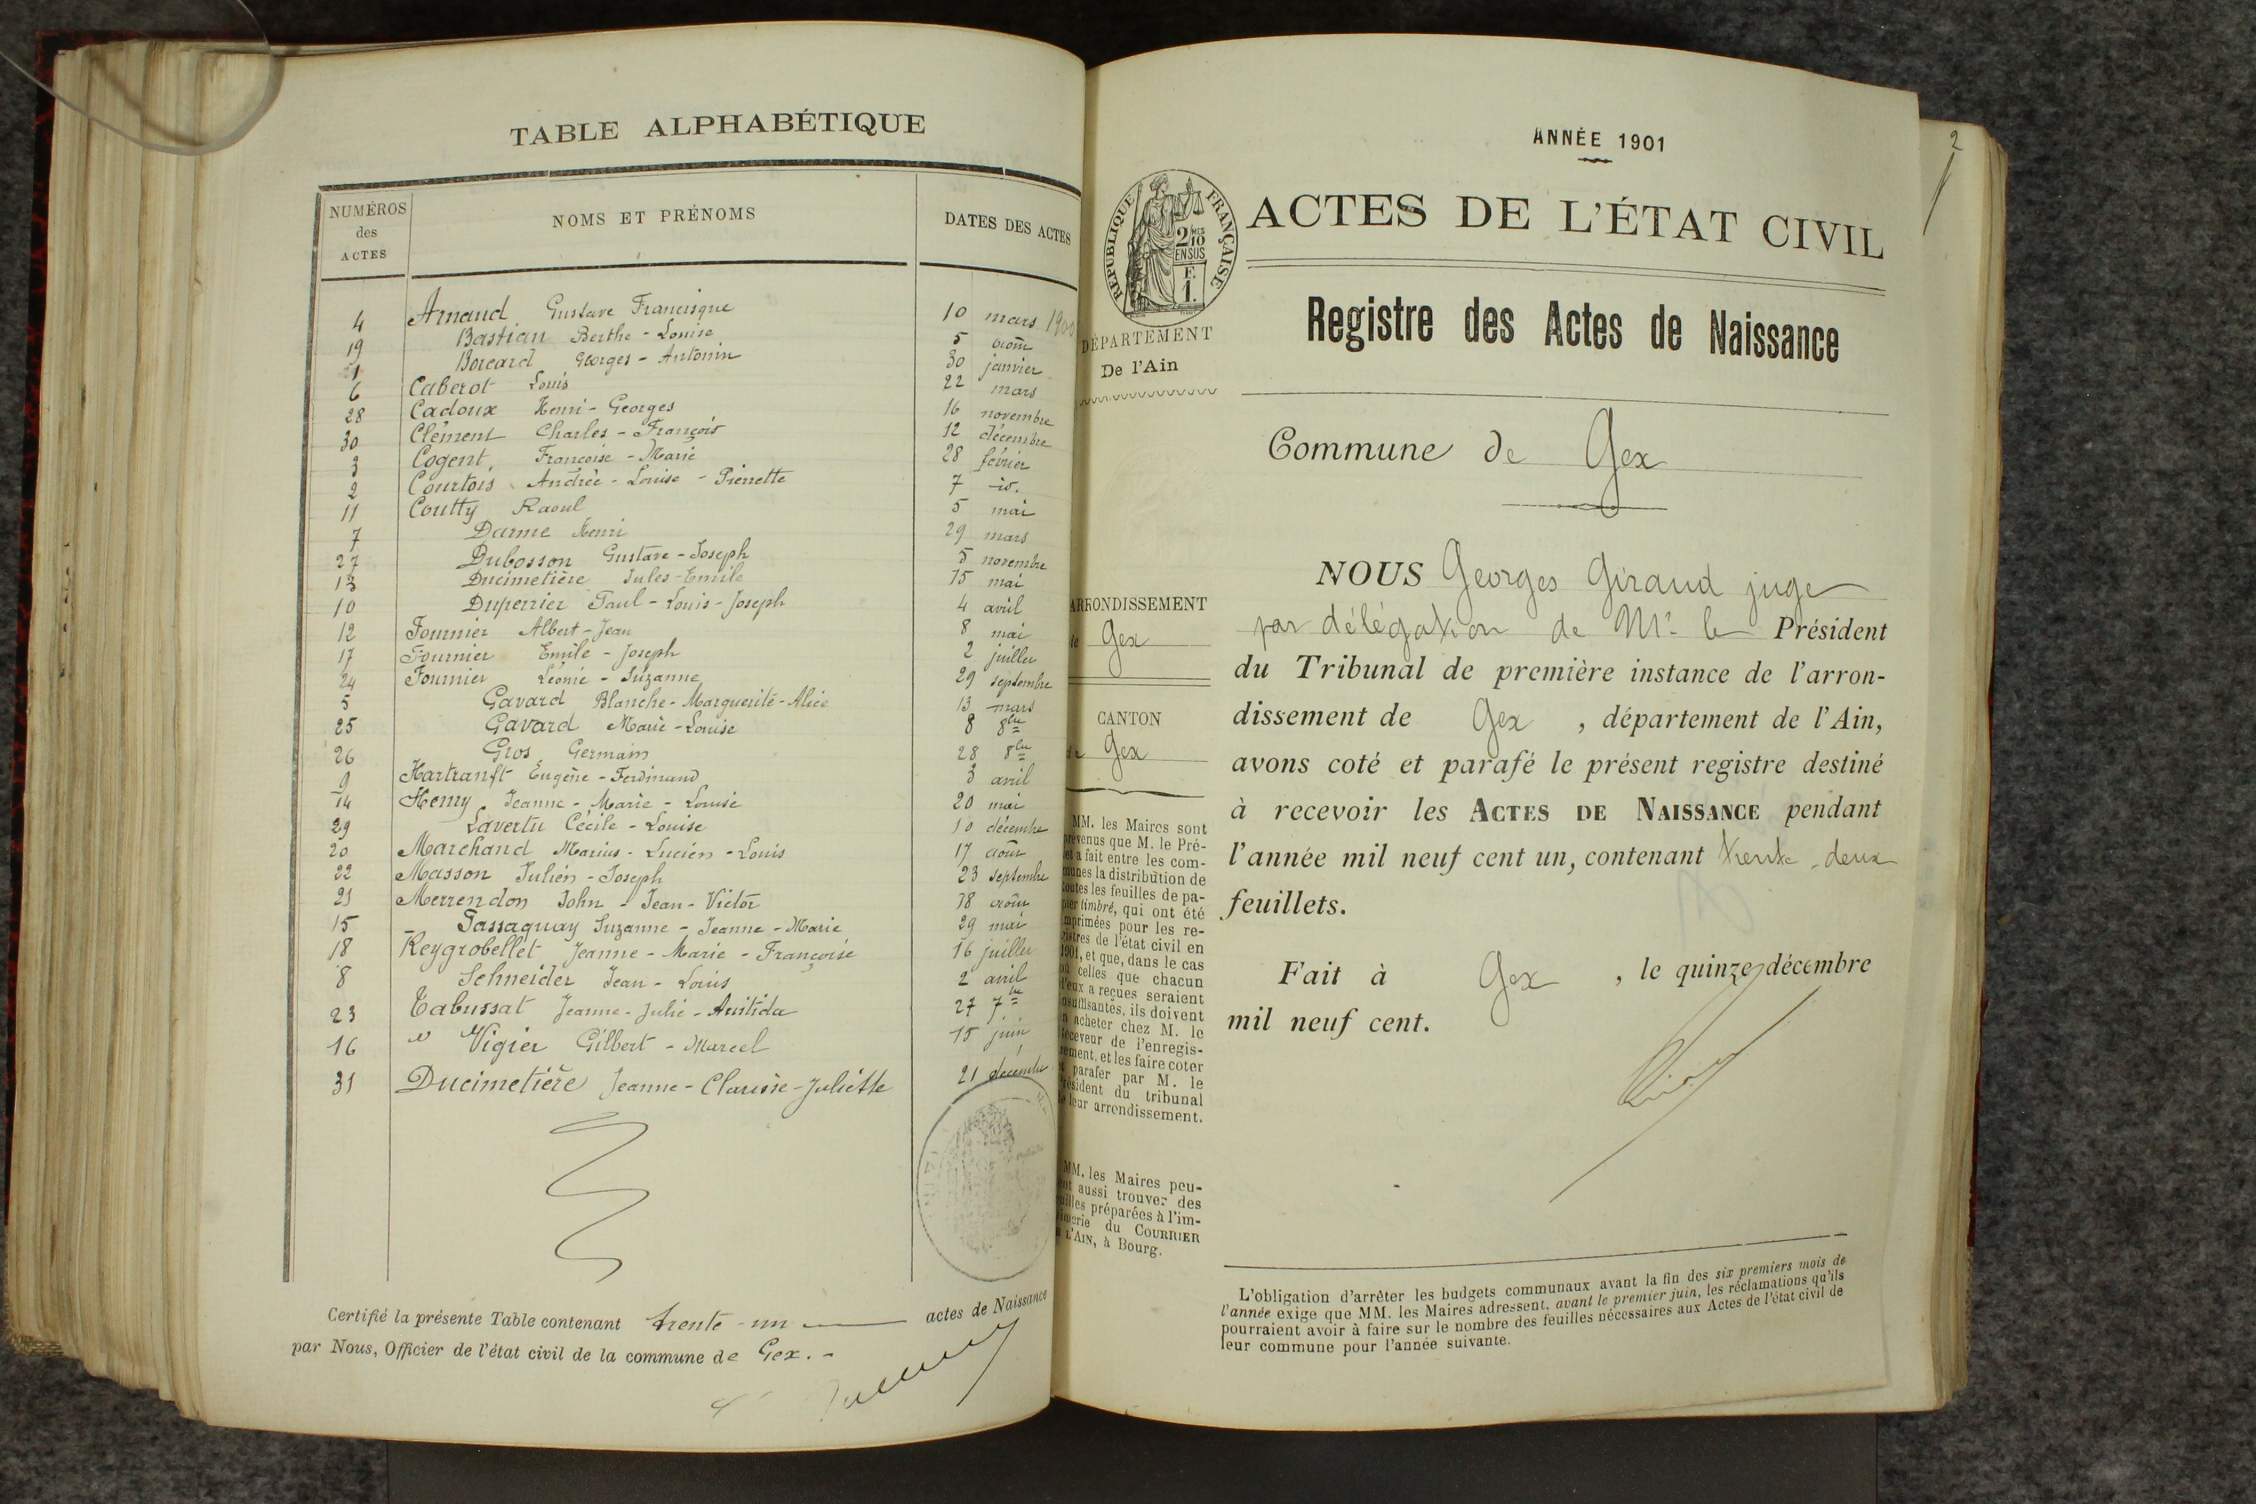 TABLE ALPHABÉTIQUE
NUMÉROS des ACTES NOMS ET PRÉNOMS DATES DES ACTES
4 Arnaud Gustave Francisque 10 mars 1900
19 Bastian Berthe - Louise 5 août
1 Borcard Georges - Antonin 30 janvier
6 Caberot Louis 22 mars
28 Cadoux Henri - Georges 16 novembre
30 Clément Charles - François 12 décembre
3 Cogent Françoise - Marie 28 février
2 Courtois Andrée - Louise - Pierrette 7 id.
11 Coutty Raoul 5 mai
7 Danne Henri 29 mars
27 Dubosson Gustave - Joseph 5 novembre
13 Ducimetière Jules - Emile 15 mai
10 Duperrier Paul - Louis - Joseph 4 avril
12 Fournier Albert - Jean 8 mai
17 Fournier Emile - Joseph 2 juillet
24 Fournier Léonie - Suzanne 29 septembre
5 Gavard Blanche - Marguerite - Alice 13 mars
25 Gavard Marie - Louise 8 8bre
26 Gros Germain 28 8bre
9 Hartranft Eugène - Ferdinand 3 avril
14 Henry Jeanne - Marie - Louise 20 mai
29 Lavertu Cécile - Louise 10 décembre
20 Marchand Marius - Lucien - Louis 17 août
22 Masson Julien - Joseph 23 septembre
21 Merrendon John - Jean - Victor 18 août
15 Passaquay Suzanne - Jeanne - Marie 29 mai
18 Reygrobellet Jeanne - Marie - Françoise 16 juillet
8 Schneider Jean - Louis 2 avril
23 Tabussat Jeanne - Julie - Aristida 27 7bre
16 Vigier Gilbert - Marcel 15 juin
31 Ducimetière Jeanne - Clarisse - Juliette 21 décembre
Certifié la présente Table contenant trente-un actes de Naissance
par Nous, Officier de l'état civil de la commune de Gex.-
2
ANNÉE 1901
ACTES DE L'ÉTAT CIVIL
RÉPUBLIQUE FRANÇAISE
2/10 EN SUS
F. 1.
Registre des Actes de Naissance
DÉPARTEMENT
De l'Ain
Commune de Gex
ARRONDISSEMENT
de Gex
CANTON
de Gex
MM. les Maires sont
prévenus que M. le Pré-
fet a fait entre les com-
munes la distribution de
toutes les feuilles de pa-
pier timbré, qui ont été
imprimées pour les re-
gistres de l'état civil en
1901, et que, dans le cas
où celles que chacun
d'eux a reçues seraient
insuffisantes, ils doivent
en acheter chez M. le
receveur de l'enregis-
rement, et les faire coter
et parafer par M. le
Président du tribunal
de leur arrondissement.
MM. les Maires peu-
vent aussi trouver des
feuilles préparées à l'im-
primerie du COURRIER
DE L'AIN, à Bourg.
NOUS Georges Giraud juge
par délégation de Mr. le Président
du Tribunal de première instance de l'arron-
dissement de Gex, département de l'Ain,
avons coté et parafé le présent registre destiné
à recevoir les ACTES DE NAISSANCE pendant
l'année mil neuf cent un, contenant trente-deux
feuillets.
Fait à Gex, le quinze décembre
mil neuf cent.
L'obligation d'arrêter les budgets communaux avant la fin des six premiers mois de
l'année exige que MM. les Maires adressent, avant le premier juin, les réclamations qu'ils
pourraient avoir à faire sur le nombre des feuilles nécessaires aux Actes de l'état civil de
leur commune pour l'année suivante.